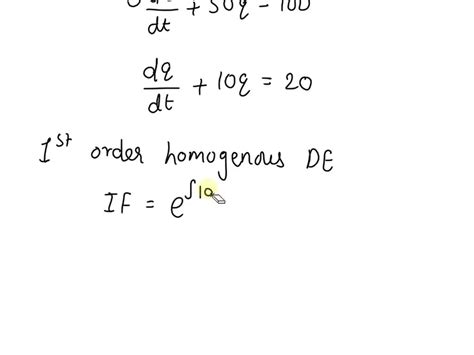 dt + 50q = 100
dq/dt + 10q = 20
1st order homogenous DE
IF = e^∫10